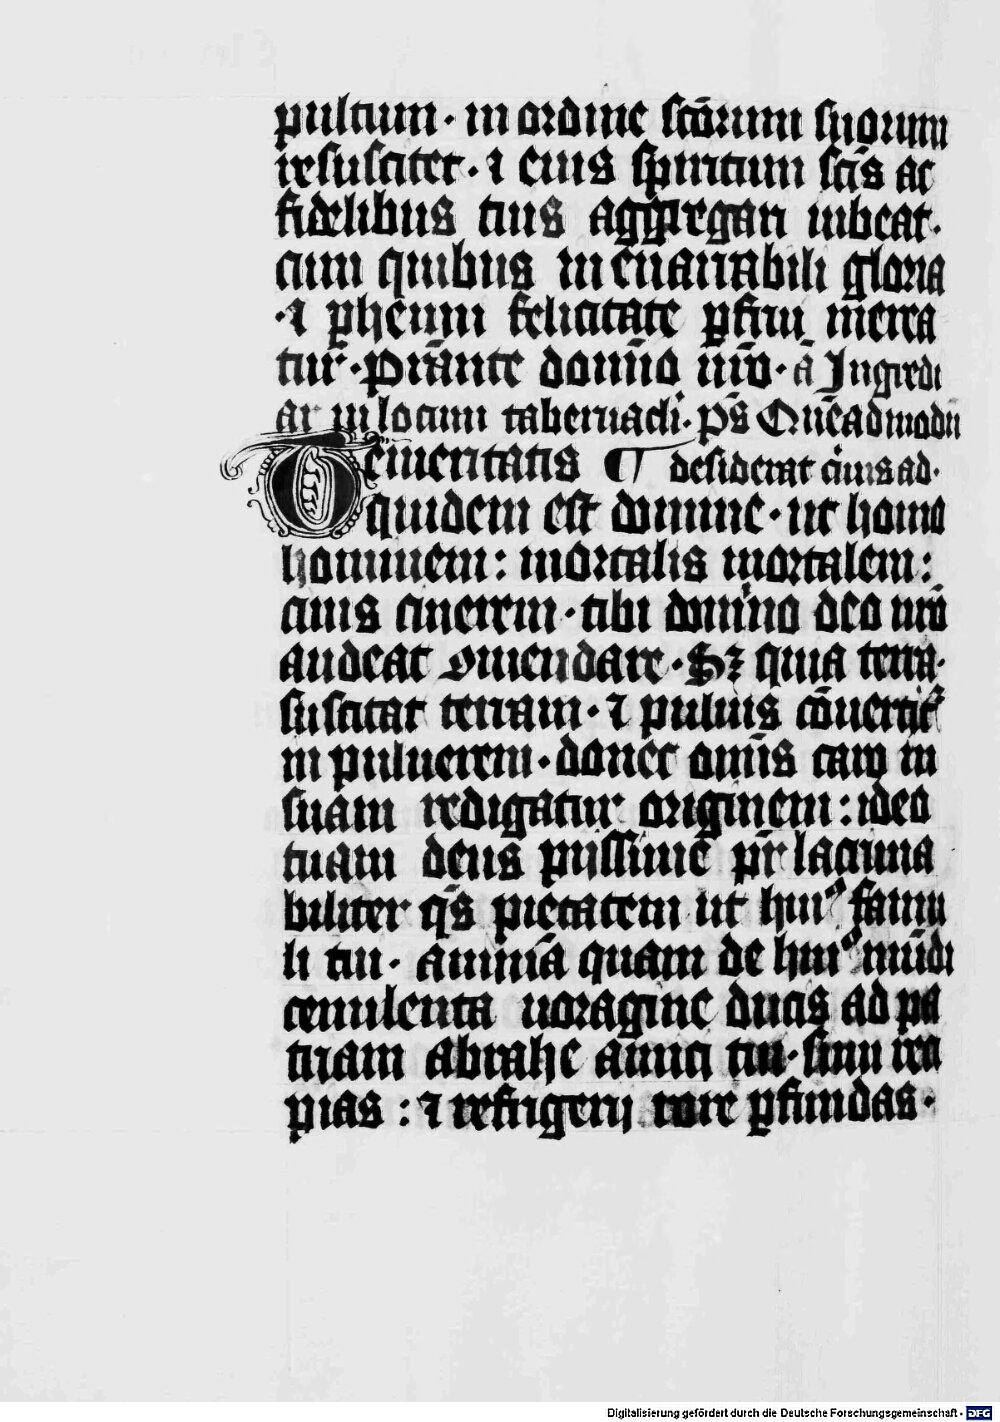 pultum · in ordine sc̄orum suorum
resuscitet · ⁊ eius spiritum sc̄is ac
fidelibus tuis aggregari iubeat ·
cum quibus in enarrabili gloria
· ⁊ ꝑhenni felicitate ꝑfrui merea
tur · Prestante domīno nr̄o · ā Ingredi
ar in locum tabernacl̄i · p̄s Quēadmodū
Temeritatis ¶ desiderat ceruus ad ·
quidem est domine · ut homo
hominem : mortalis mortalem :
cinis cinerem · tibi domino deo nr̄o
audeat cōmendare · Sꝫ quia terra ·
suscipit terram · ⁊ puluis cōuertit᷑
in puluerem · donec omīs caro in
suam redigatur originem : ideo
tuam deus piissime pr̄ lacrima
biliter q̄s pietatem ut huiꝰ famu
li tui · animā quam de huiꝰ mūdi
cenulenta uoragine ducis ad pa
triam abrahe amici tui · sinu reci
pias : ⁊ refrigerij rore ꝑfundas ·
Digitalisierung gefördert durch die Deutsche Forschungsgemeinschaft - DFG